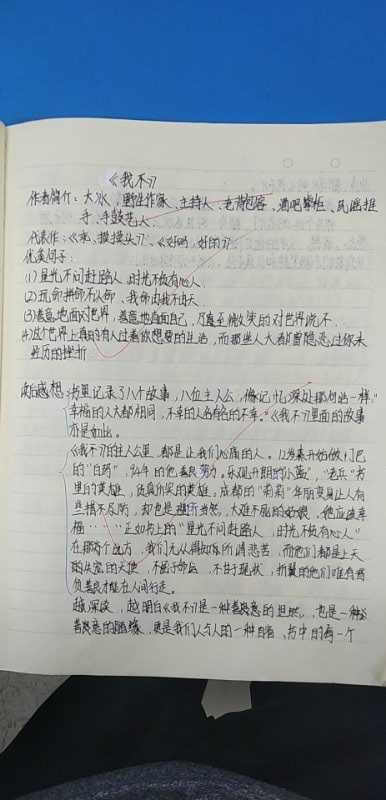 《我不》
作者简介：大冰，野生作家、主持人、老背包客、酒吧掌柜、民谣推
手、手鼓艺人、
代表作：《乖，摸摸头》、《好吗，好的》
优美句子：
(1)星光不问赶路人，时光不负有心人
(2)玩命拼命不认命，我命由我不由天
(3)善意地面对世界，善意地直面自己，乃至微笑的对世界说不…
(4)这个世界上真的有人过着你想要的生活，而那些人大都曾隐忍过你未
经历的挫折
读后感想：书里记录了八个故事，八位主人公，像记忆深处那句话一样："
幸福的人大都相同，不幸的人各有各的不幸。"《我不》里面的故事
亦是如此。
《我不》的主人公里，都是让我们心痛的人。12岁来开始做
的"白药"，的他善良努力。乐观开朗的小蓝"，"老兵"书
里的英雄，货真价实的英雄，成都的"莉莉"年丽变身让人有
些措不及防，却也是理所当然，大难不死的姑娘，他应该幸
福……正如书上的"星光不问赶路人，时光不负有心人"
在那个远方，我们无从得知你所谓悲苦，而他们都是上天
的庆宠的天使，不屈于命运，不甘于现状，折翼的他们唯有背
负善良才能在人间行走。
越深读，越明白《我不》是一种善意的坦然，也是一种
善良意的，更是我们人与人的一种自省，书中的每一个